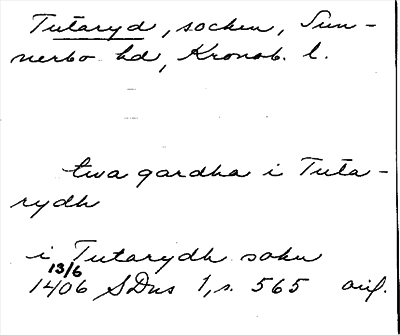 Tutaryd, socken, Sun-
nerbo hd, Kronob. l.
twa gardha i Tuta-
rydh
i Tutarydh sokn
13/6
1406 SDns 1, s. 565 avs.